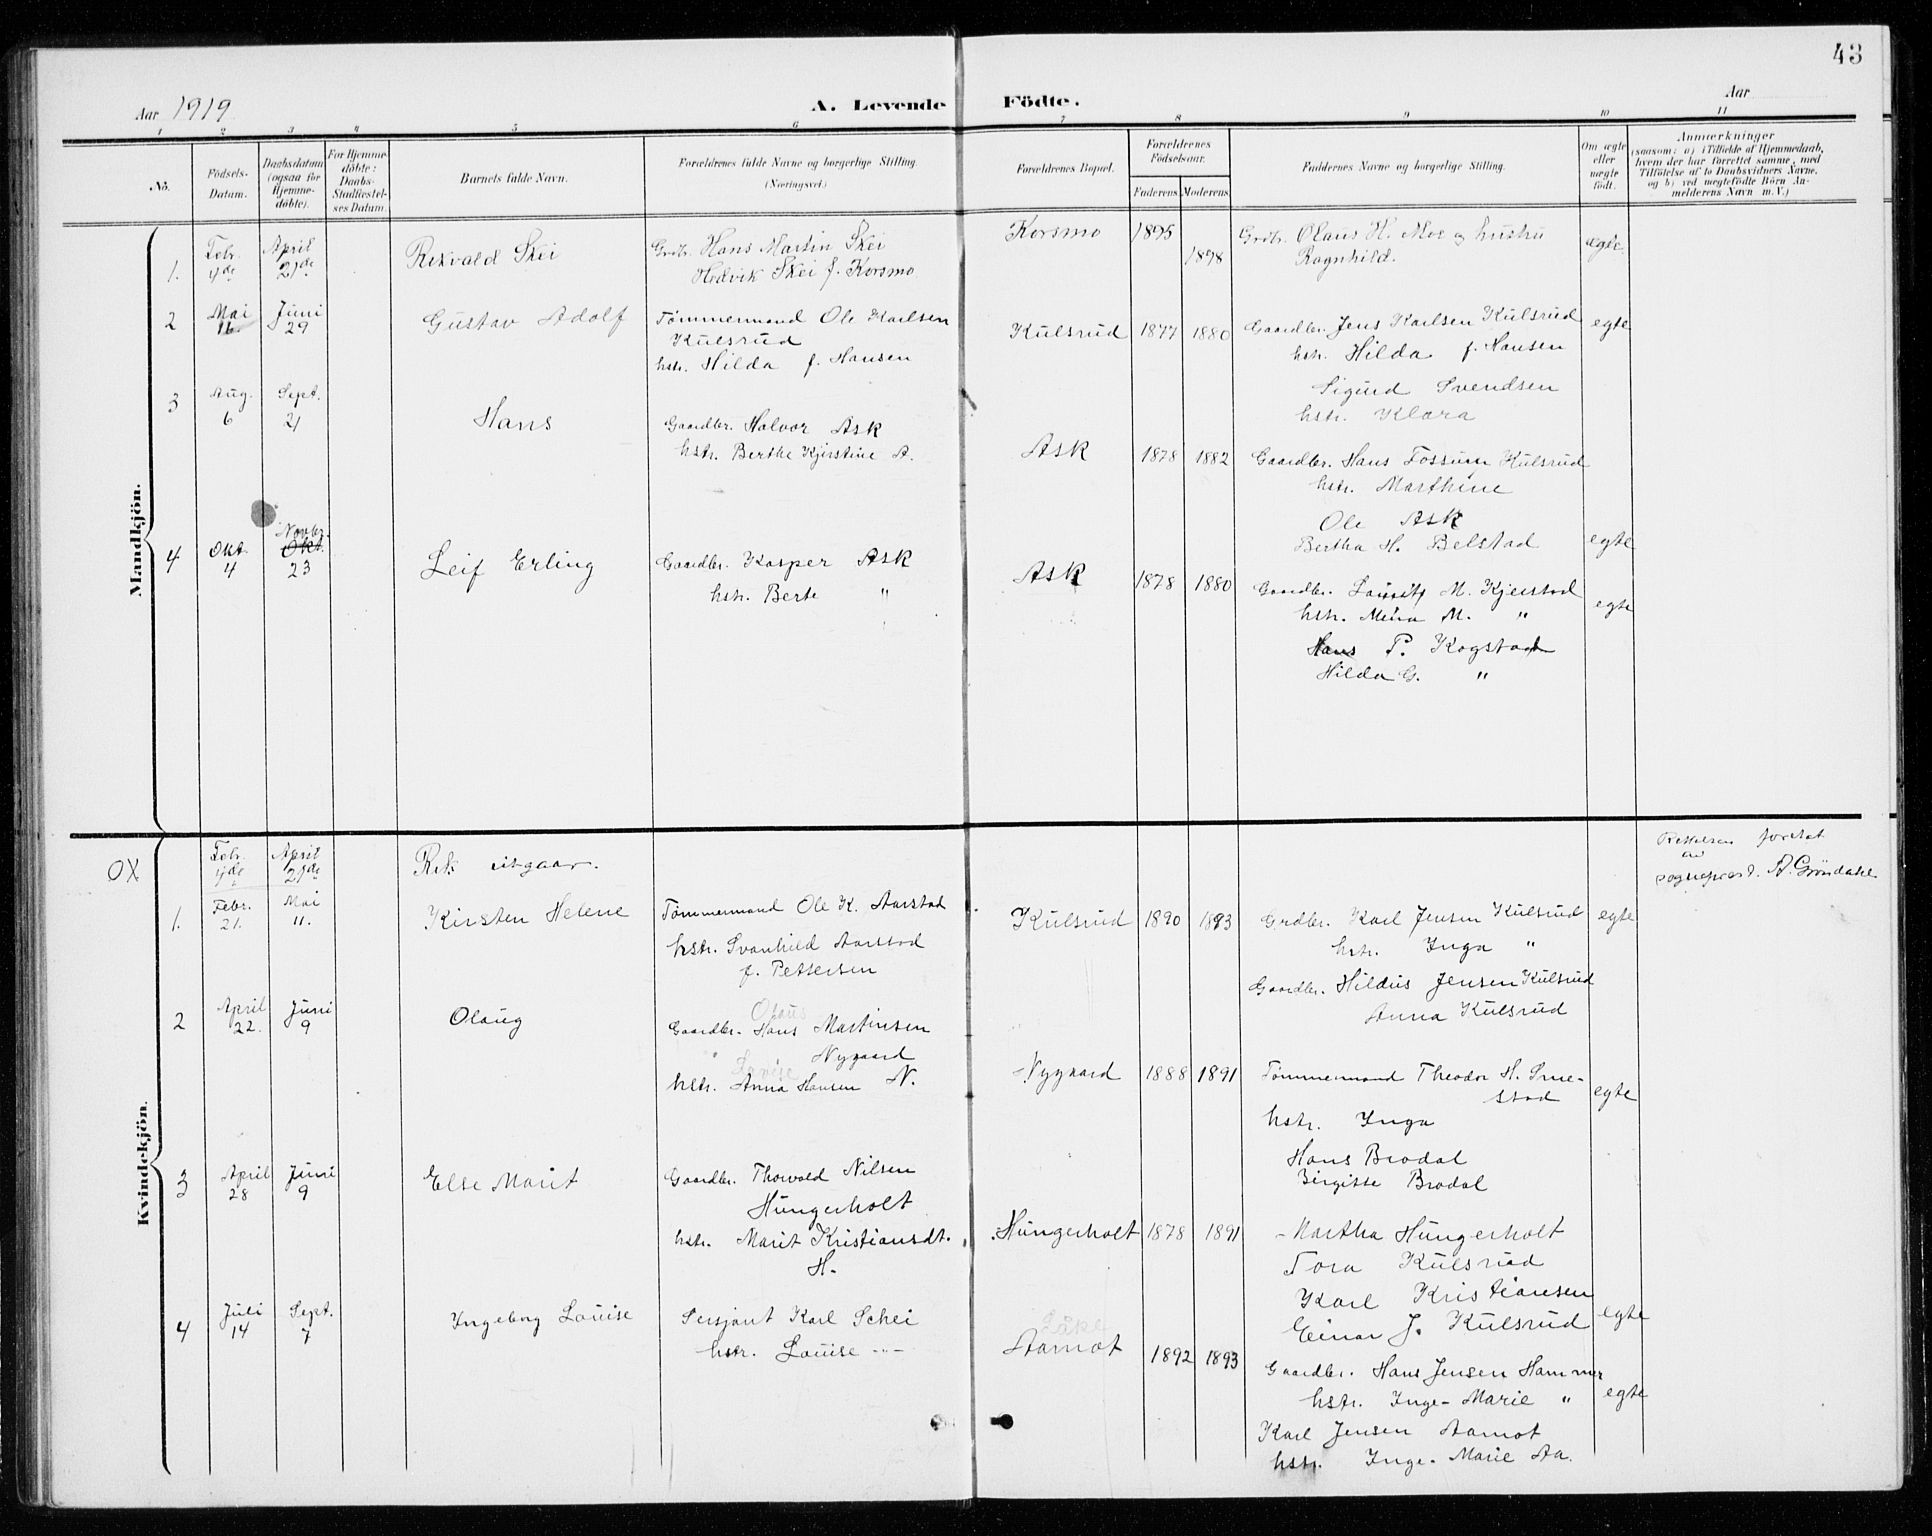 43
Aar 1919
A. Levende Födte.
Aar
1 2 3 4 5 6 7 8 9 10 11
Nö.
Födsels-
Datum.
Daabsdatum
(ogsaa for
Hjemme-
døbte).
For Hjemme-
döbte:
Daabs-
Stadfæstel-
ses Datum.
Barnets fulde Navn.
Forældrenes fulde Navne og borgerlige Stilling.
(Næringsvei.)
Forældrenes Bopæl.
Forældrenes
Födselsaar.
Faderens Moderens
Faddernes Navne og borgerlige Stilling.
Om ægte
eller
uægte
födt.
Anmærkninger
(saasom: a) i Tilfælde af Hjemmedaab,
hvem der har forrettet samme, med
Tilföielse af to Daabsvidners Navne,
og b) ved uægtefödte Börn An-
melderens Navn m. V.)
Mandkjön.
1. Febr. 4de April 21de
Rikvald Skei
Grdbr. Hans Martin Skei
Hedvik Skei f. Korsmo
Korsmo 1895 1898
Grdbr. Olaus H. Moe og hustru
Ragnhild.
ægte
2 Mai 16. Juni 29
Gustav Adolf
Tømmermand Ole Karlsen
Kulsrud
hstr. Hilda f. Hansen
Kulsrud 1877 1880
Gaardbr. Jens Karlsen Kulsrud
hstr. Hilda f. Hansen
Sigurd Svendsen
hstr. Klara
egte
3 Aug. 6 Sept. 21
Hans
Gaardbr. Halvor Ask
hstr. Berthe Kjirstine A.
Ask 1878 1882
Gaardbr. Hans Fossum Kulsrud
hstr. Marthine
Ole Ask
Bertha H. Belstad
egte
4 Okt. 4 Novbr. Okt. 23
Leif Erling
Gaardbr. Kasper Ask
hstr. Berte "
Ask 1878 1880
Gaardbr. Lauritz M. Kjerstad
hstr. Mina M. "
Hans P. Kogstad
Hilda G. "
egte
Kvindekjön.
OX Febr. 4de April 21de
Rik utgaar.
Rettelsen foretat
av
sogneprest. A. Grøndahl
1. Febr. 21. Mai 11.
Kirsten Helene
Tømmermand Ole K. Aarstad
hstr. Svanhild Aarstad
f. Pettersen
Kulsrud 1890 1893
Grdbr. Karl Jensen Kulsrud
hstr. Inga "
Gaardbr. Hildus Jensen Kulsrud
Anna Kulsrud
egte
2 April 22. Juni 9
Olaug
Olaus
Gaardbr. Hans Martinsen
Nygaard
Lovise
hstr. Anna Hansen N.
Nygaard 1888 1891
Tømmermand Theodor H. Sme-
stad
hstr. Inga
Hans Brodal
Birgitte Brodal
egte
3 April 28 Juni 9
Else Marit
Gaardbr. Thorvald Nilsen
Hungerholt
hstr. Marit Kristiansdt.
H.
Hungerholt 1878 1891
Martha Hungerholt
Tora Kulsrud
Karl Kristiansen
Einar J. Kulsrud
egte
4 Juli 14 Sept. 7
Ingeborg Louise
Sersjant Karl Schei
hstr. Louise -"-
Aamot 1892 1893
Gaardbr. Hans Jensen Hammer
hstr. Inge-Marie "
Karl Jensen Aamot
hstr. Inge-Marie Aa.
egte